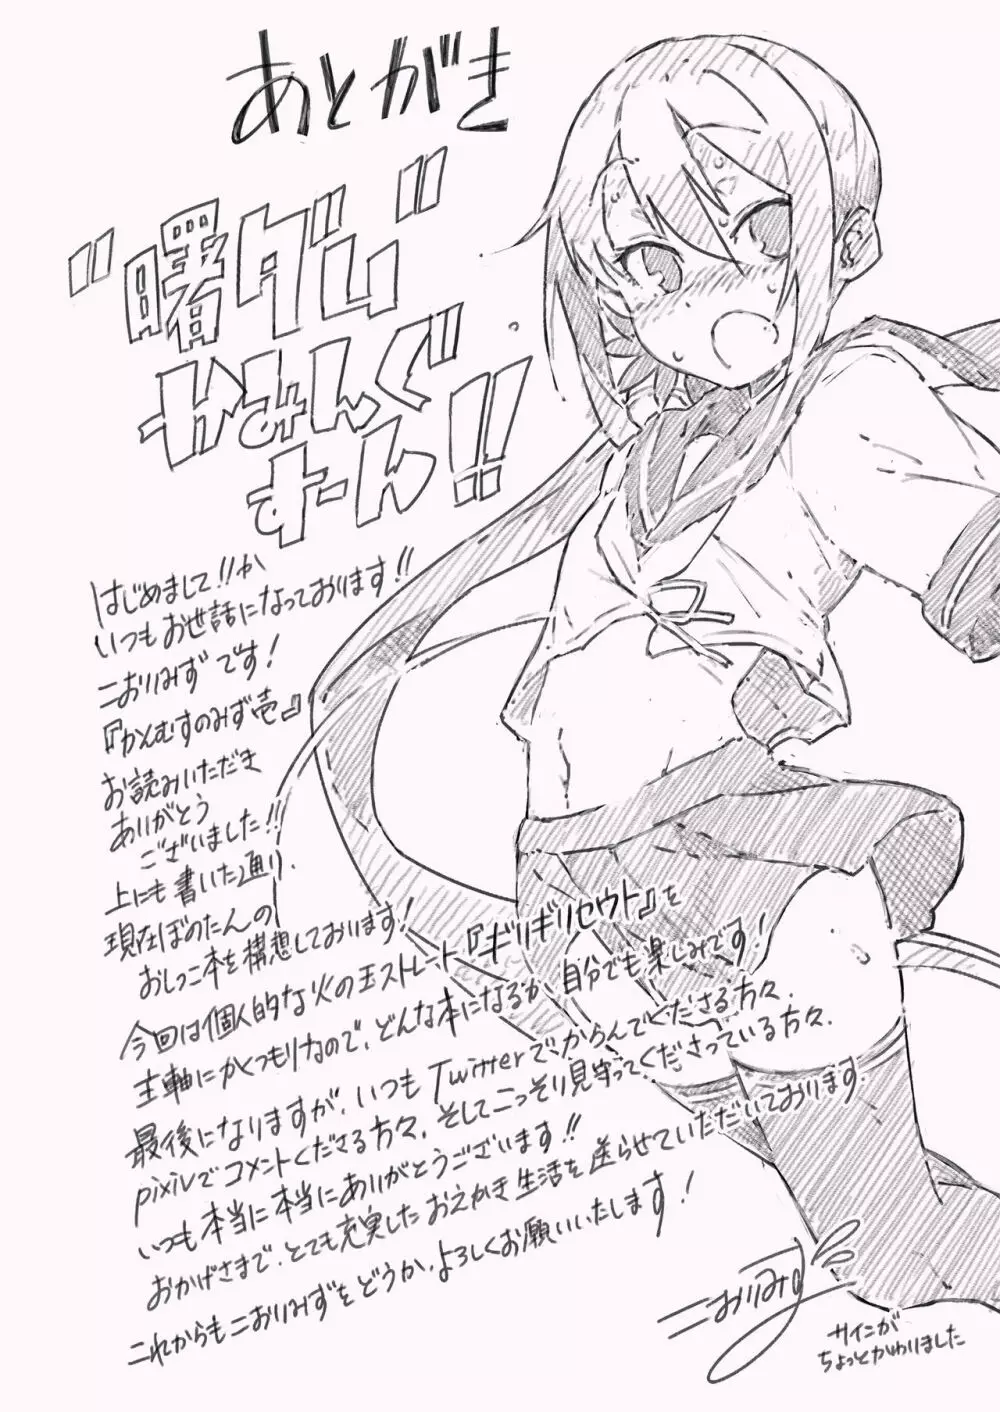 あとがき
"曙ダム"
かみんぐ
すーん!!
はじめまして!!か
いつもお世話になっております!!
こおりみずです!
『かんむすのみず壱』
お読みいただき
ありがとう
ございました!!
上にも書いた通り、
現在ぼのたんの
おしっこ本を構想しております!
今回は個人的な火の玉ストレート『ギリギリセウト』を
主軸にかくつもりなので、どんな本になるか自分でも楽しみです!
最後になりますが、いつもTwitterでからんでくださる方々、
pixivでコメントくださる方々、そしてこっそり見守ってくださっている方々、
いつも本当に本当にありがとうございます!!
おかげさまで、とても充実したおえかき生活を送らせていただいております。
これからもこおりみずをどうか、よろしくお願いいたします!
こおりみず
サインが
ちょっとかわりました